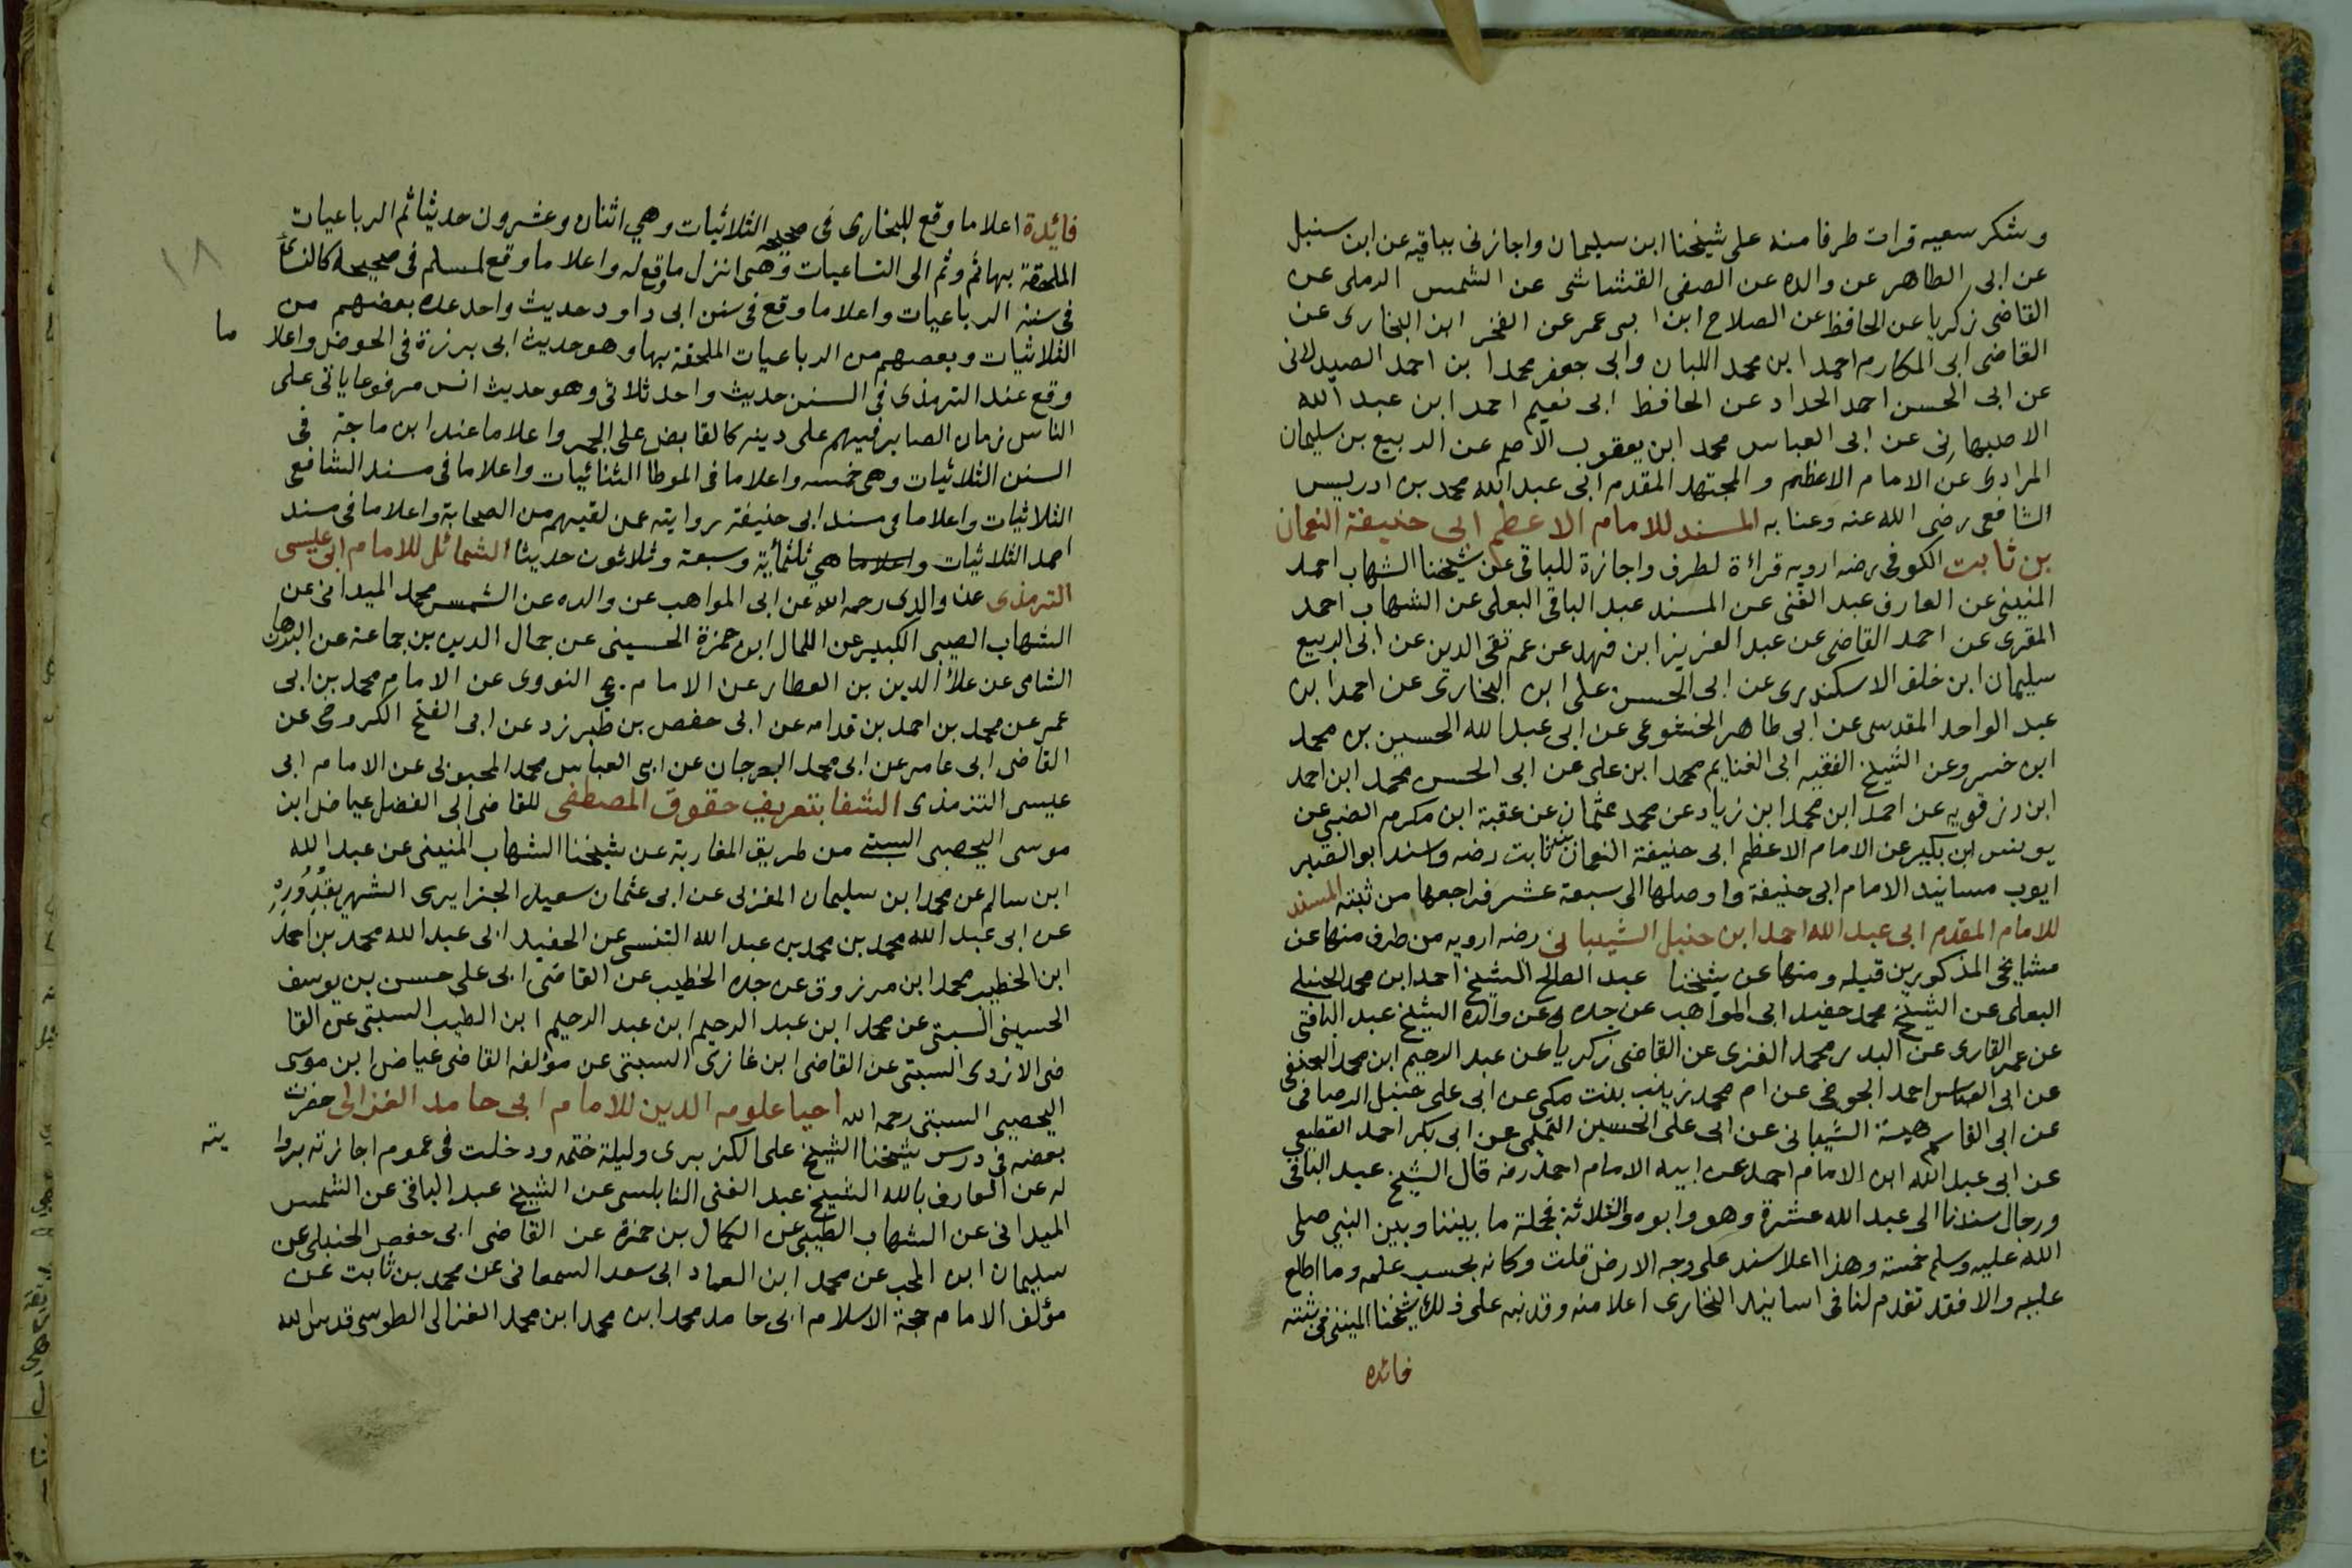 وشكر سعيه قرات طرفا منه على شيخنا ابن سليمان واجازنى بباقيه عن ابن سنبل
عن ابى الطاهر عن والده عن الصفى القشاشى عن الشمس الرملى عن
القاضى زكريا عن الحافظ عن الصلاح ابن ابى عمر عن الفخر ابن البخارى عن
القاضى ابى المكارم احمد ابن محمد اللبان وابى جعفر محمد ابن احمد الصيدلانى
عن ابى الحسن احمد الحداد عن الحافظ ابى نعيم احمد ابن عبد الله
الاصبهانى عن ابى العباس محمد ابن يعقوب الاصم عن الربيع بن سليمان
المرادى عن الامام الاعظم والمجتهد المقدم ابى عبد الله محمد بن ادريس
الشافعى رضى الله عنه وعنا به المسند للامام الاعظم ابى حنيفة النعمان
بن ثابت الكوفى رضه ارويه قرائة لطرف واجازة للباقى عن شيخنا الشهاب احمد
المنينى عن العارف عبد الغنى عن المسند عبد الباقى البعلى عن الشهاب احمد
المقرى عن احمد القاضى عن عبد العزيز ابن فهد عن عمه تقى الدين عن ابى الربيع
سليمان ابن خلف الاسكندرى عن ابى الحسن على ابن البخارى عن احمد ابن
عبد الواحد المقدسى عن ابى طاهر الخشوعى عن ابى عبد الله الحسين بن محمد
ابن خسرو عن الشيخ الفقيه ابى الغنايم محمد ابن على عن ابى الحسن محمد ابن احمد
ابن رزقويه عن احمد ابن محمد ابن زياد عن محمد عثمان عن عقبة ابن مكرم الضبى عن
يوىنس ابن بكير عن الامام الاعظم ابى حنيفة النعمان بن ثابت رضه واسند ابو الصبر
ايوب مسانيد الامام ابى حنيفة واوصلها الى سبعة عشر فراجعها من ثبته المسند
للامام المقدم ابى عبد الله احمد ابن حنبل الشيبانى رضه ارويه من طرف منها عن
مشايخى المذكورين قبله ومنها عن شيخنا عبد الصالح الشيخ احمد ابن محمد الحنبلى
البعلى عن الشيخ محمد حفيد ابى المواهب عن جده عن والده الشيخ عبد الباقى
عن عمر القارى عن البدر محمد الغزى عن القاضى زكريا عن عبد الرحيم ابن محمد الحنفى
عن ابى العباس احمد الجوخى عن ام محمد زينب بنت مكى عن ابى على حنبل الرصافى
عن ابى القاسم هبة الشيبانى عن ابى على الحسين التميمى عن ابى بكر احمد القطيعى
عن ابى عبد الله ابن الامام احمد عن ابيه الامام احمد رضه قال الشيخ عبد الباقى
ورجال سندنا الى عبد الله عشرة وهو وابوه والثلاثة فجملة ما بيننا وبين النبى صلى
الله عليه وسلم خمسة وهذا اعلا سند على وجه الارض قلت وكانه بحسب علمه وما اطلع
عليه والا فقد تقدم لنا فى اسانيد البخارى اعلا منه وقد نبه على ذلك شيخنا المنينى فى ثبته
فائده
١٨
فائدة اعلا ما وقع للبخارى فى صحيحه الثلاثيات وهي اثنان وعشرون حديثا ثم الرباعيات
الملحقة بها ثم وثم الى التساعيات وهى انزل ما وقع له واعلا ما وقع لمسلم فى صحيحه كالنسائى
فى سننه الرباعيات واعلا ما وقع فى سنن ابى داود حديث واحد عده بعضهم من
الثلاثيات وبعضهم من الرباعيات الملحقة بها وهو حديث ابى برزة فى الحوض واعلا ما
وقع عند الترمذى فى السنن حديث واحد ثلاثى وهو حديث انس مرفوعا ياتى على
الناس زمان الصابر فيهم على دينه كالقابض على الجمر واعلا ما عند ابن ماجة فى
السنن الثلاثيات وهى خمسه واعلا ما فى الموطا الثنائيات واعلا ما فى مسند الشافعى
الثلاثيات واعلا ما فى مسند ابى حنيفة روايته عن لقيهم من الصحابة واعلا ما فى مسند
احمد الثلاثيات واعلاما هي ثلثمائة وسبعة وثلاثون حديثا الشمائل للامام ابى عيسى
الترمذى عن والدى رحمه الله عن ابى المواهب عن والده عن الشمس محمد الميدانى عن
الشهاب الطيبى الكبير عن الكمال ابن حمزة الحسينى عن جمال الدين بن جماعة عن البرهان
الشامى عن علاء الدين بن العطار عن الامام يحي النووى عن الامام محمد بن ابى
عمر عن محمد بن احمد بن قدامه عن ابى حفص بن طبرزد عن ابى الفتح الكروخى عن
القاضى ابى عامر عن ابى محمد الجرجان عن ابى العباس محمد المحبوبى عن الامام ابى
عيسى الترمذى الشفا بتعريف حقوق المصطفى للقاضى ابى الفضل عياض ابن
موسى اليحصبى السبتى من طريق المغاربة عن شيخنا الشهاب المنينى عن عبد الله
ابن سالم عن محمد ابن سليمان المغربى عن ابى عثمان سعيد الجزايرى الشهير بقدوره
عن ابى عبد الله محمد بن محمد بن عبد الله التنسى عن الحفيد ابى عبد الله محمد بن احمد
ابن الخطيب محمد ابن مرزوق عن جده الخطيب عن القاضى ابى على حسن بن يوسف
الحسينى السبتى عن محمد ابن عبد الرحيم ابن عبد الرحيم ابن الطيب السبتى عن القا
ضى الازدى السبتى عن القاضى ابن غازى السبتى عن مؤلفه القاضى عياض ابن موسى
اليحصبى السبتى رحمه الله احيا علوم الدين للامام ابى حامد الغزالى حضرت
بعضه فى درس شيخنا الشيخ على الكزبرى وليلة ختمه ودخلت فى عموم اجازته بروا يته
له عن العارف بالله الشيخ عبد الغنى النابلسى عن الشيخ عبد الباقى عن الشمس
الميدانى عن الشهاب الطيبى عن الكمال بن حمزة عن القاضى ابى حفص الحنبلى عن
سليمان ابن المحب عن محمد ابن العماد ابى سعد السمعانى عن محمد بن ثابت عن
مؤلف الامام حجة الاسلام ابى حامد محمد ابن محمد ابن محمد الغزالى الطوسى قدس الله